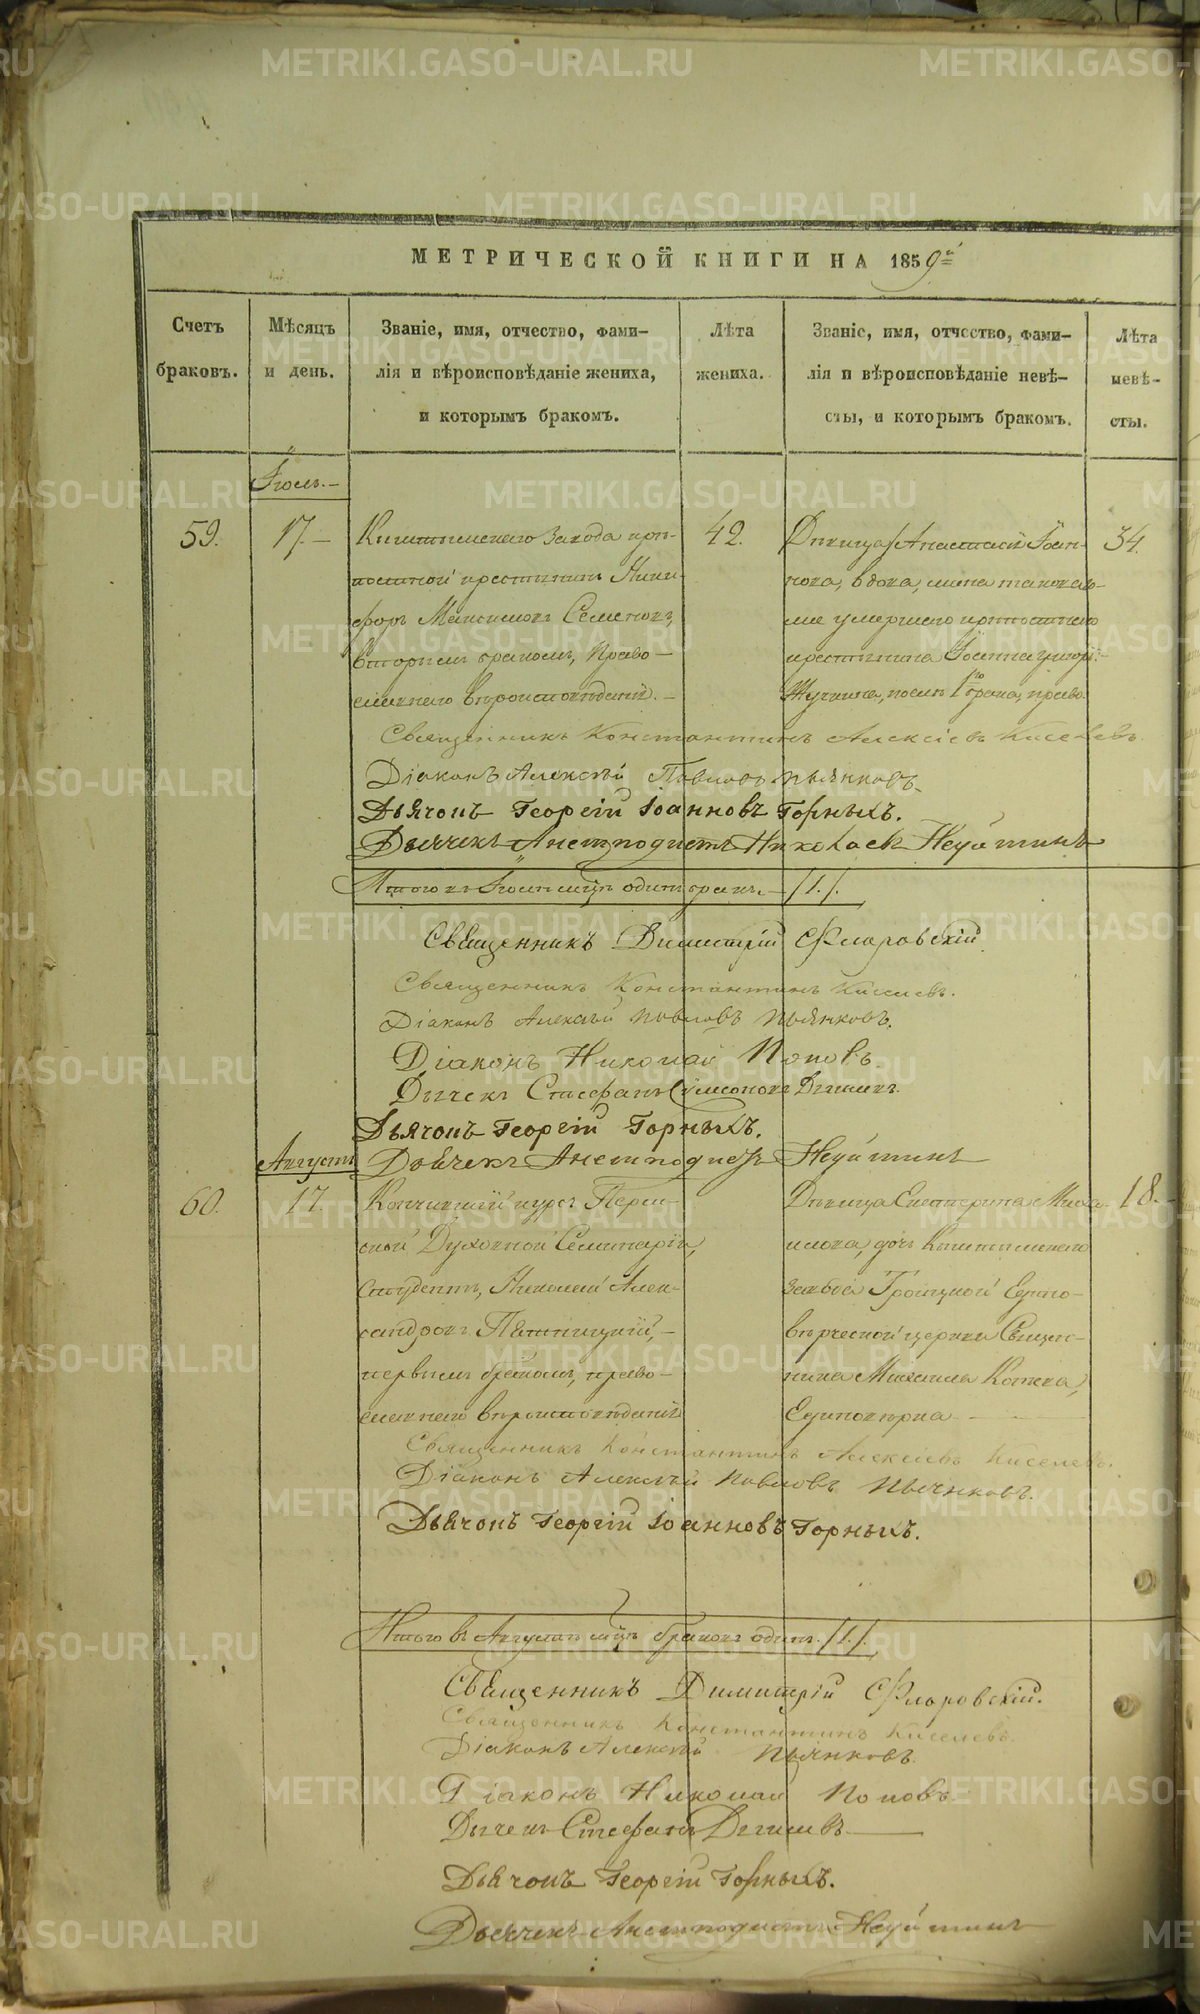 МЕТРИЧЕСКОЙ КНИГИ НА 1859й
Счетъ браковъ.
Мѣсяцъ и день.
Званіе, имя, отчество, фами-
лія и вѣроисповѣданіе жениха,
и которымъ бракомъ.
Лѣта
жениха.
Званіе, имя, отчество, фами-
лія и вѣроисповѣданіе невѣ-
сты, и которымъ бракомъ.
Лѣта
невѣ-
сты.
Іюль.
59.
17.
Кыштымскаго завода крѣ-
постной крестьянинъ Ники-
форъ Максимовъ Семеновъ,
вторымъ бракомъ, Право-
славнаго вѣроисповѣданія.
42.
Анастасія Іоан-
нова, вдова,
умершаго крѣпостнаго
крестьянина Іоанна
послѣ 1го брака, право.
34.
Священникъ Константинъ Алексіевъ Киселевъ.
Діаконъ Алексѣй Павловъ Пьянковъ.
Дьячокъ Георгій Іоанновъ Горныхъ.
Дьячекъ Анемподистъ Николаевъ Неуйминъ
Итого въ Іюлѣ мцѣ одинъ бракъ. /1./.
Священникъ Димитрій Флоровскій
Священникъ Константинъ Киселевъ.
Діаконъ Алексѣй Павловъ Пьянковъ.
Діаконъ Николай Поповъ.
Дьячекъ Стефанъ Симеоновъ
Дьячокъ Георгій Горныхъ.
Дьячекъ Анемподистъ Неуйминъ
Августъ
60.
17.
Кончившій курсъ Перм-
ской Духовной Семинаріи,
Студентъ, Николай Алек-
сандровъ Пятницкій,
первымъ бракомъ, право-
славнаго вѣроисповѣданія
Дѣвица Екатерина Миха-
илова, дочь Кыштымскаго
завода Троицкой Едино-
вѣрческой церкви Священ-
ника Михаила
Единовѣрка
18.
Священникъ Константинъ Алексѣевъ Киселевъ.
Діаконъ Алексѣй Павловъ Пьянковъ.
Дьячокъ Георгій Іоанновъ Горныхъ.
Итого въ Августѣ мцѣ браковъ одинъ. /1./.
Священникъ Димитрій Флоровскій.
Священникъ Константинъ Киселевъ.
Діаконъ Алексѣй Пьянковъ.
Діаконъ Николай Поповъ
Дьячекъ Стефанъ
Дьячокъ Георгій Горныхъ.
Дьячекъ Анемподистъ Неуйминъ
METRIKI.GASO-URAL.RU